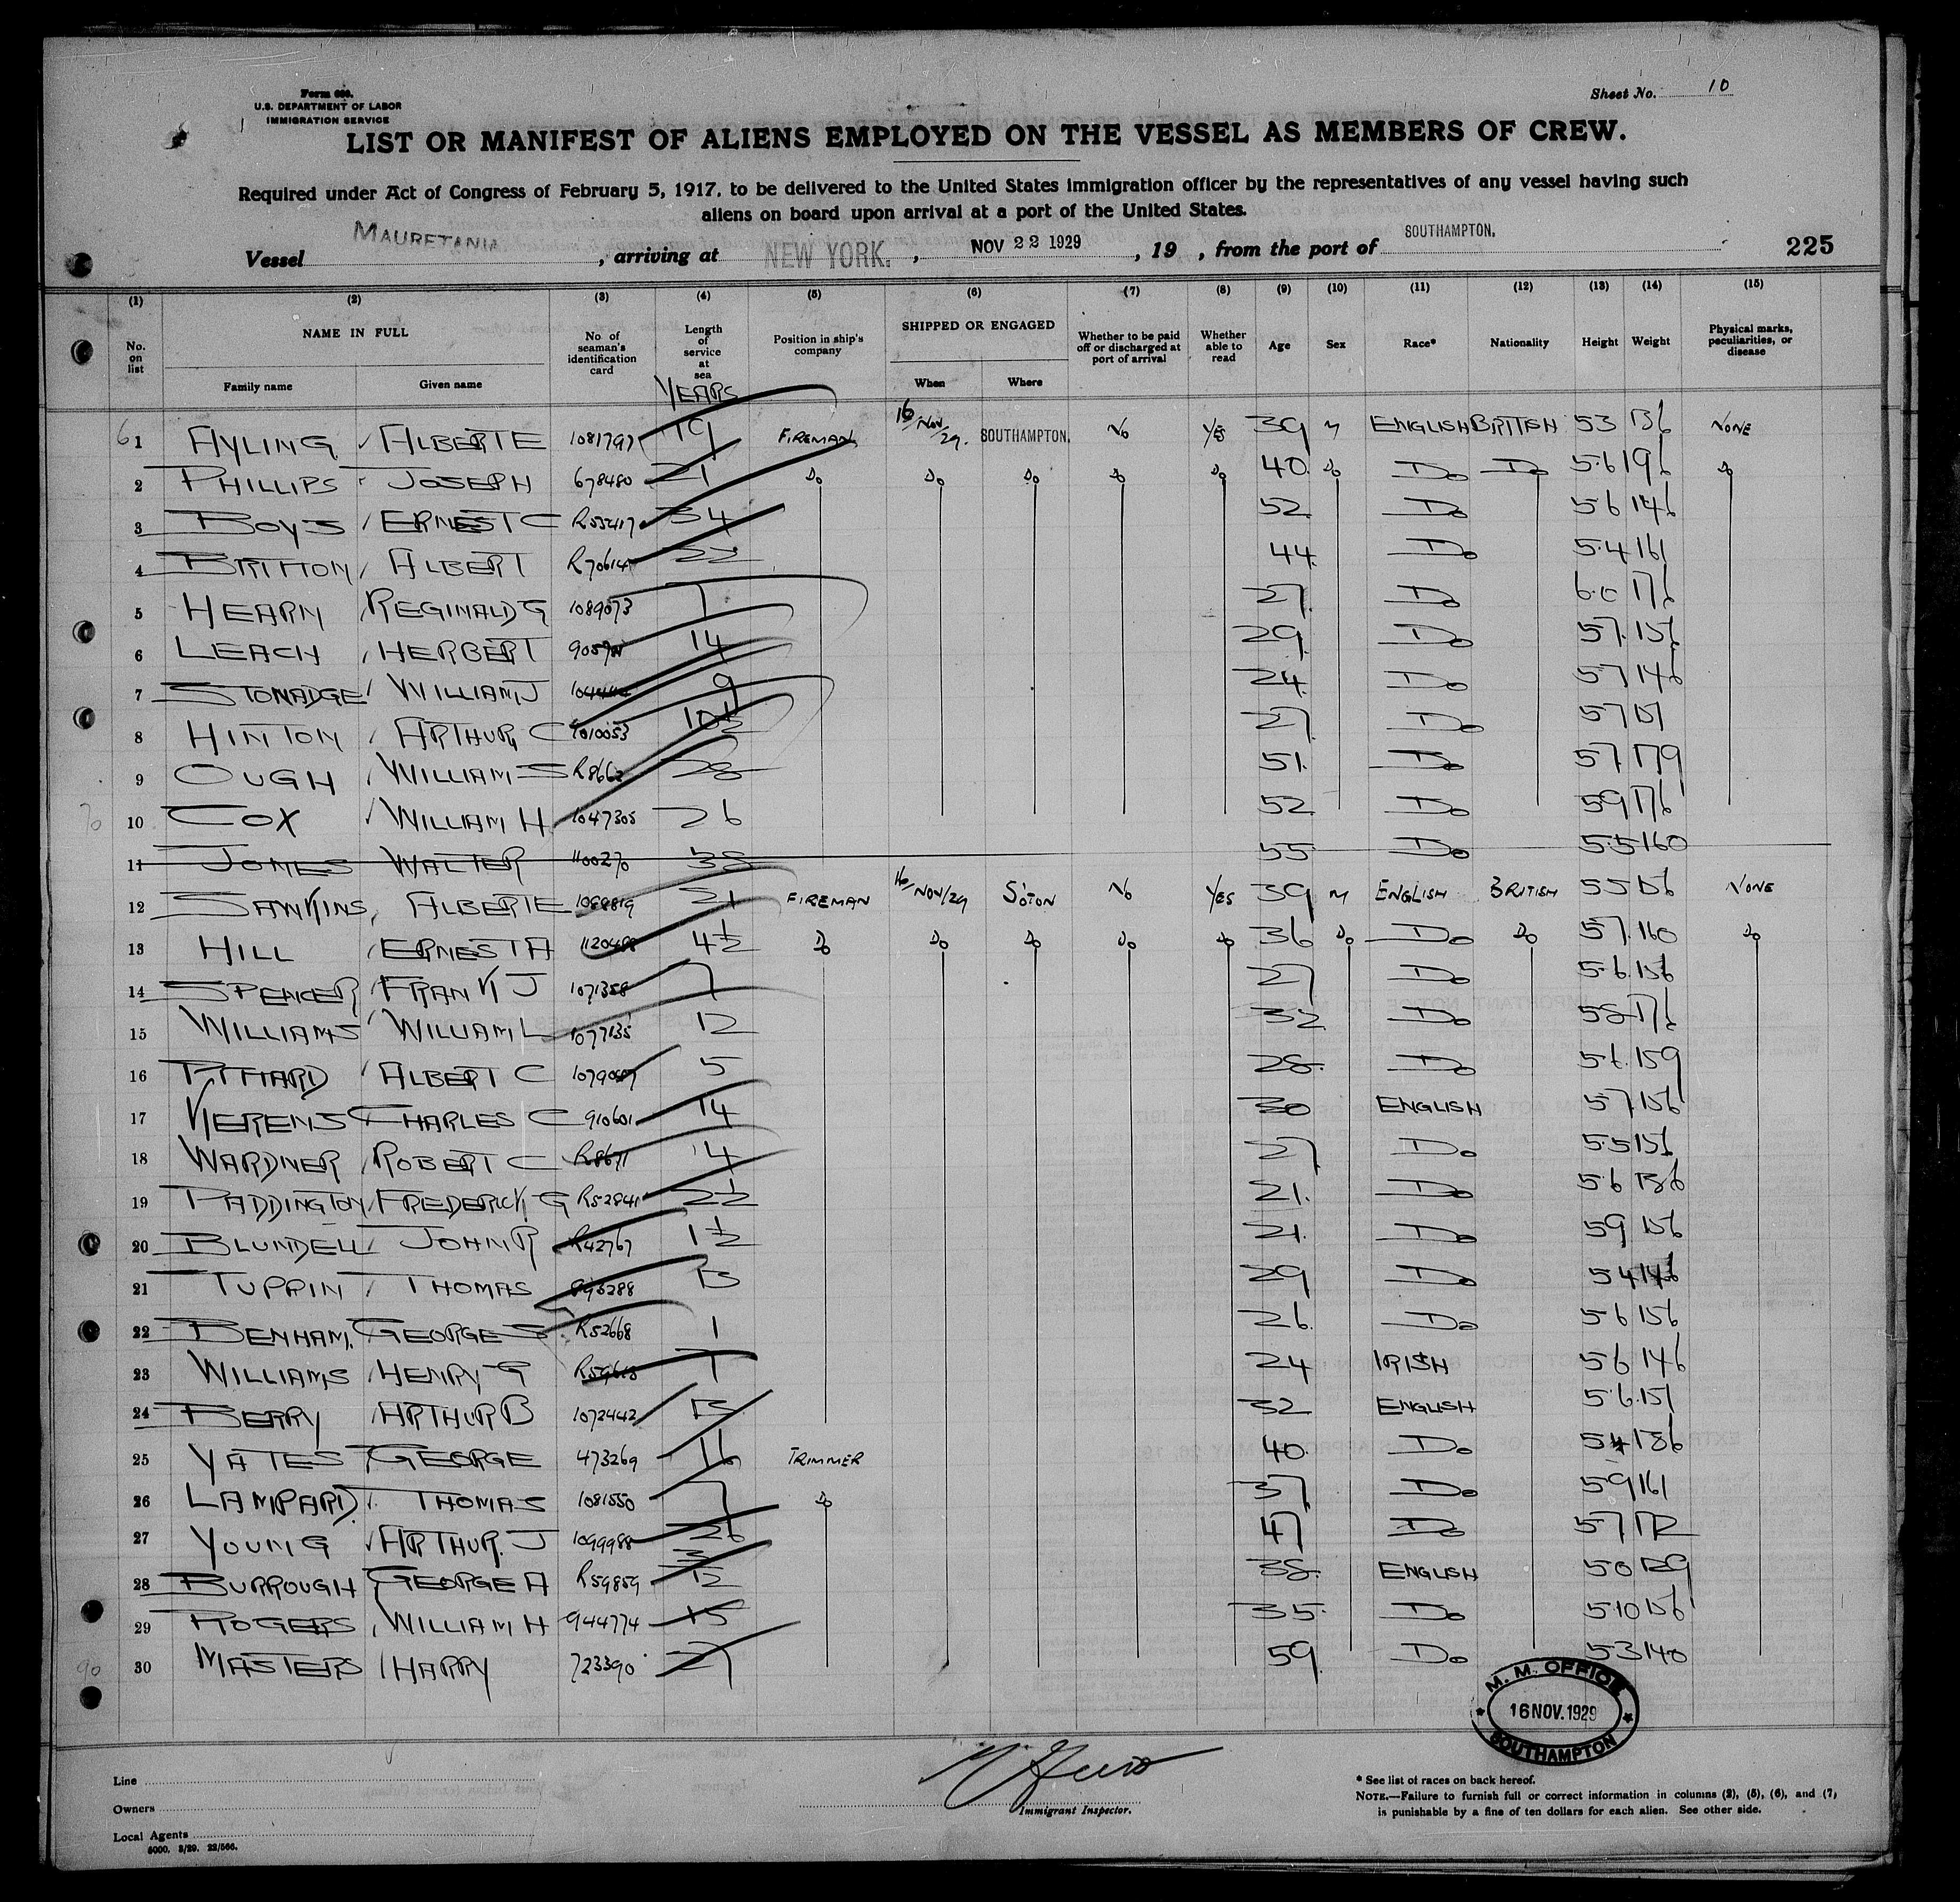 Sheet No. 10
U.S. DEPARTMENT OF LABOR
IMMIGRATION SERVICE
LIST OR MANIFEST OF ALIENS EMPLOYED ON THE VESSEL AS MEMBERS OF CREW.
Required under Act of Congress of February 5, 1917, to be delivered to the United States immigration officer by the representatives of any vessel having such
aliens on board upon arrival at a port of the United States.
Vessel MAURETANIA, arriving at NEW YORK., NOV 22 1929, 19 , from the port of SOUTHAMPTON. 225
(1) (2) (3) (4) (5) (6) (7) (8) (9) (10) (11) (12) (13) (14) (15)
No. on list NAME IN FULL Family name Given name No. of seaman's identification card Length of service at sea YEARS Position in ship's company SHIPPED OR ENGAGED When Where Whether to be paid off or discharged at port of arrival Whether able to read Age Sex Race* Nationality Height Weight Physical marks, peculiarities, or disease
1 AYLING ALBERT E 1081797 19 FIREMAN 16/NOV/29. SOUTHAMPTON. NO YES 39 M ENGLISH BRITISH 53 136 NONE
2 PHILLIPS JOSEPH 678480 21 Do Do Do Do Do 40 Do Do Do 5.6 196 Do
3 BOYS ERNEST C R55417 34 52 Do 56 146
4 BRITTON ALBERT R70614 22 44 Do 5.4 161
5 HEARN REGINALD G 1089073 7 27 Do 6.0 176
6 LEACH HERBERT 14 29 Do 57 156
7 STONADGE WILLIAM J 9 24 Do 57 146
8 HINTON ARTHUR C 1010053 10½ 27 Do 57 151
9 OUGH WILLIAM S R8662 28 51 Do 57 179
10 COX WILLIAM H 1047305 26 52 Do 59 176
11 JONES WALTER 1100270 38 55 Do 5.5 160
12 SAWKINS ALBERT E 21 FIREMAN 16/NOV/29 S'OTON NO YES 39 M ENGLISH BRITISH 55 156 NONE
13 HILL ERNEST A 4½ Do Do Do Do Do 36 Do Do Do 57 160 Do
14 SPENCER FRANK J 1071358 7 27 Do 5.6 156
15 WILLIAMS WILLIAM L 1077135 12 32 Do 58 176
16 PITTARD ALBERT C 5 28 Do 5.6 159
17 KERENS CHARLES C 910601 14 30 ENGLISH 57 156
18 WARDNER ROBERT C R8671 4 27 Do 5.5 151
19 PADDINGTON FREDERICK G R52841 2½ 21 Do 56 136
20 BLUNDELL JOHN R R42767 1½ 21 Do 59 156
21 TUPPIN THOMAS 13 29 Do 54
22 BENHAM GEORGE S R52668 1 26 Do 56 156
23 WILLIAMS HENRY G 7 24 IRISH 56 146
24 BERRY ARTHUR B 1072442 13 32 ENGLISH 5.6 151
25 YATES GEORGE 473269 16 TRIMMER 40 Do 54 136
26 LAMPARD THOMAS 1081550 7 Do 37 Do 59 161
27 YOUNG ARTHUR J 1099988 26 47 Do 57 172
28 BURROUGH GEORGE A R59859 3/12 38 ENGLISH 50 139
29 ROGERS WILLIAM H 944774 15 35 Do 510 156
30 MASTERS HARRY 723390 27 59 Do 53 140
M. M. OFFICE
16 NOV. 1929
SOUTHAMPTON
Line
Owners
Local Agents
5000. 3/29. 22/566.
Immigrant Inspector.
* See list of races on back hereof.
NOTE.—Failure to furnish full or correct information in columns (2), (5), (6), and (7)
is punishable by a fine of ten dollars for each alien. See other side.